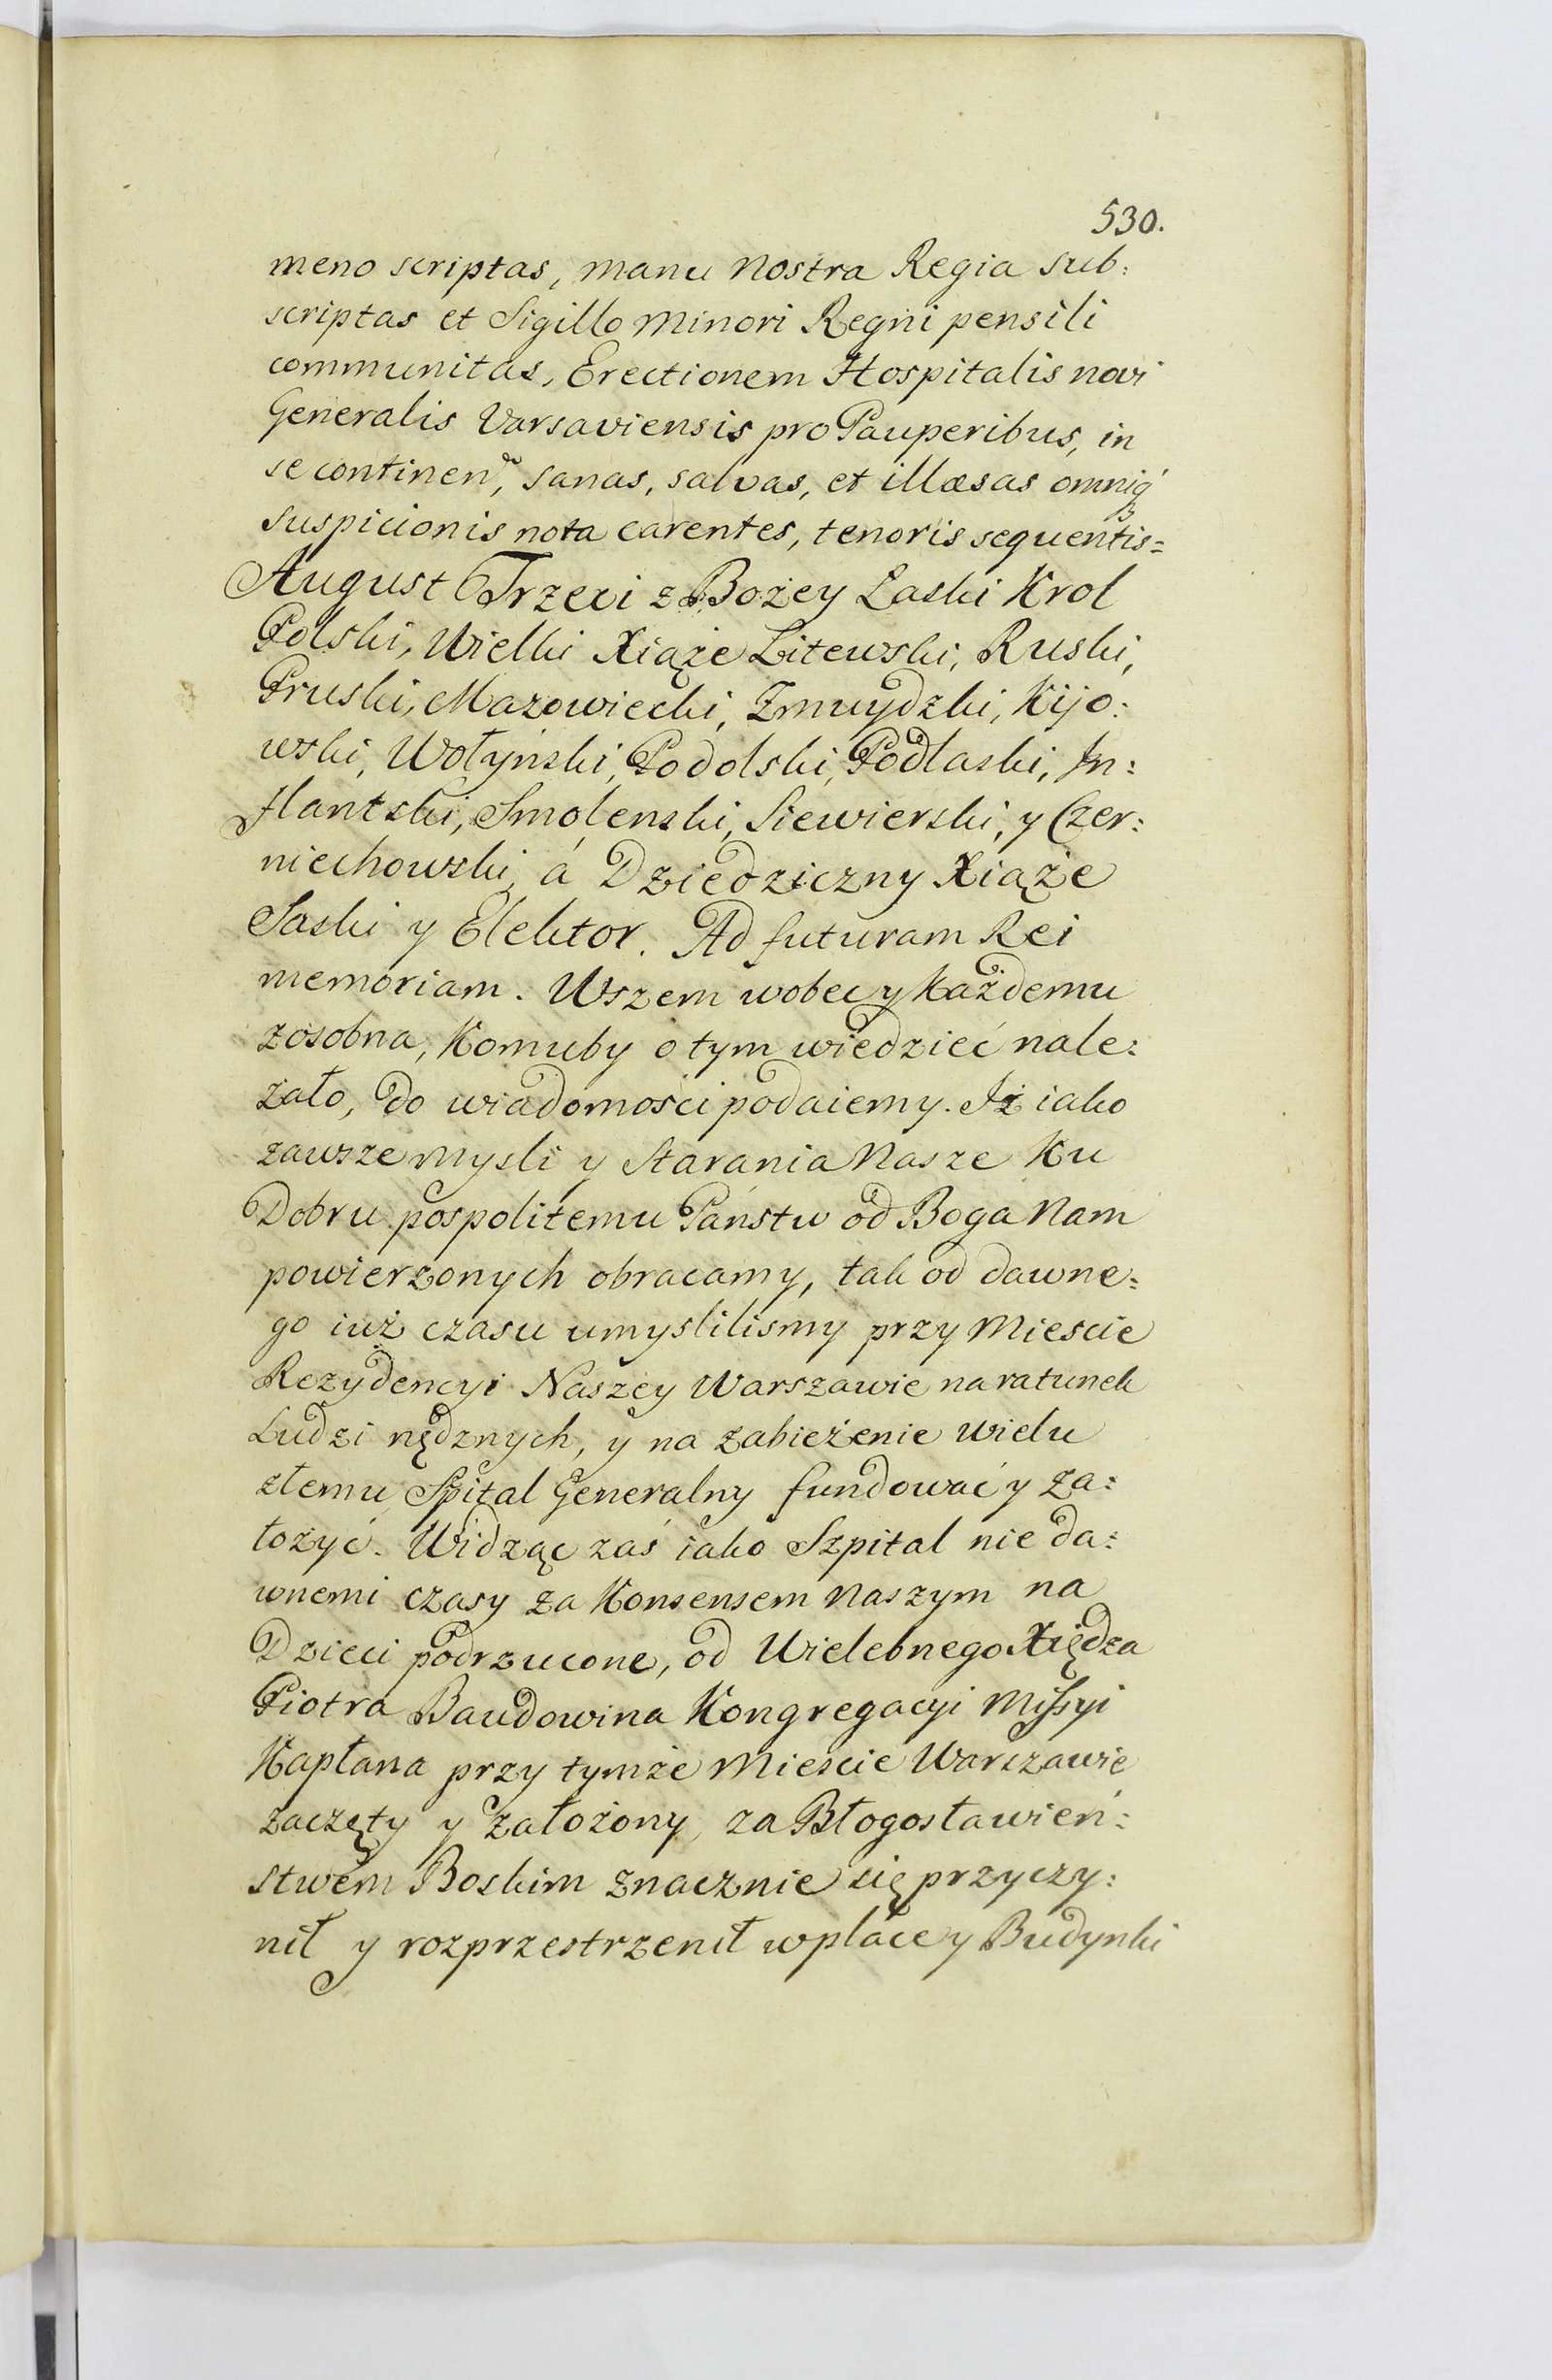 530.
meno scriptas, manu Nostra Regia sub:
scriptas et Sigillo Minori Regni pensili
communitas, Erectionem Hospitalis novi
Generalis Varsaviensis pro Pauperibus, in
se continen, sanas, salvas, et illæsas omniq́
suspicionis nota carentes, tenoris sequentis=
August Trzeci z Bożey Łaski Krol
Polski, Wielki Xiąże Litewski, Ruski,
Pruski, Mazowiecki, Zmuydzki, Kijo:
wski, Wołyński, Podolski, Podlaski, In:
flantski, Smolenski, Siewierski, y Czer:
niechowski, á Dziedziczny Xiąże
Saski y Elektor. Ad futuram Rei
memoriam. Wszem wobec y Każdemu
zosobna, Komuby o tym wiedzieć nale:
żało, do wiadomości podaiemy. Iż iako
zawsze mysli y Starania Nasze Ku
Dobru pospolitemu Państw od Boga Nam
powierzonych obracamy, tak od dawne:
go iuż czasu umyslilismy przy Miescie
Rezydencyi Naszey Warszawie na ratunek
Ludzi nędznych, y na zabieżenie wielu
złemu Spital Generalny fundować y za:
łożyć. Widząc zaś iako Szpital nie da:
wnemi czasy za Konsensem Naszym na
Dzieci podrzucone, od Wielebnego Xiędza
Piotra Baudowina Kongregacyi Missyi
Kapłana przy tymże Miescie Warszawie
zaczęty y założony, za Błogosławień:
stwem Boskim znacznie się przyczy:
nił y rozprzestrzenił w place y Budynki